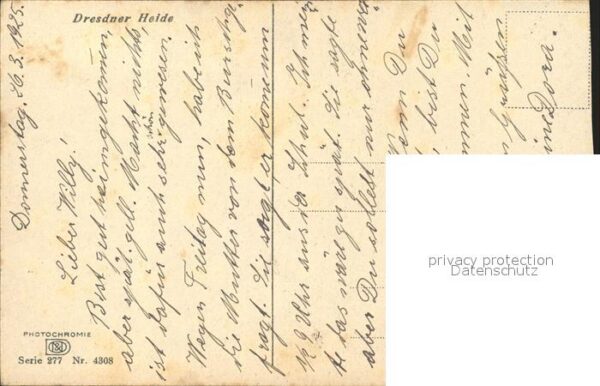 Dresdner Heide
Donnerstag, 26.3.1925.
Lieber Willy!
Bist gut heimgekommen,
aber spät, gell. Macht nichts,
ist dafür auch schön
sehr gewesen.
Wegen Freitag nun, habe ich
die Mutter von dem
fragt. Sie sagt er kommt um
1/2 9 Uhr aus der Schul. Ich mein
te das wäre zu spät. Sie sagte
aber Du sollest nur
Wenn Du
, bist Du
kommen. Mit
grüßen
Dora.
PHOTOCHROMIE
Serie 277 Nr. 4308
privacy protection
Datenschutz